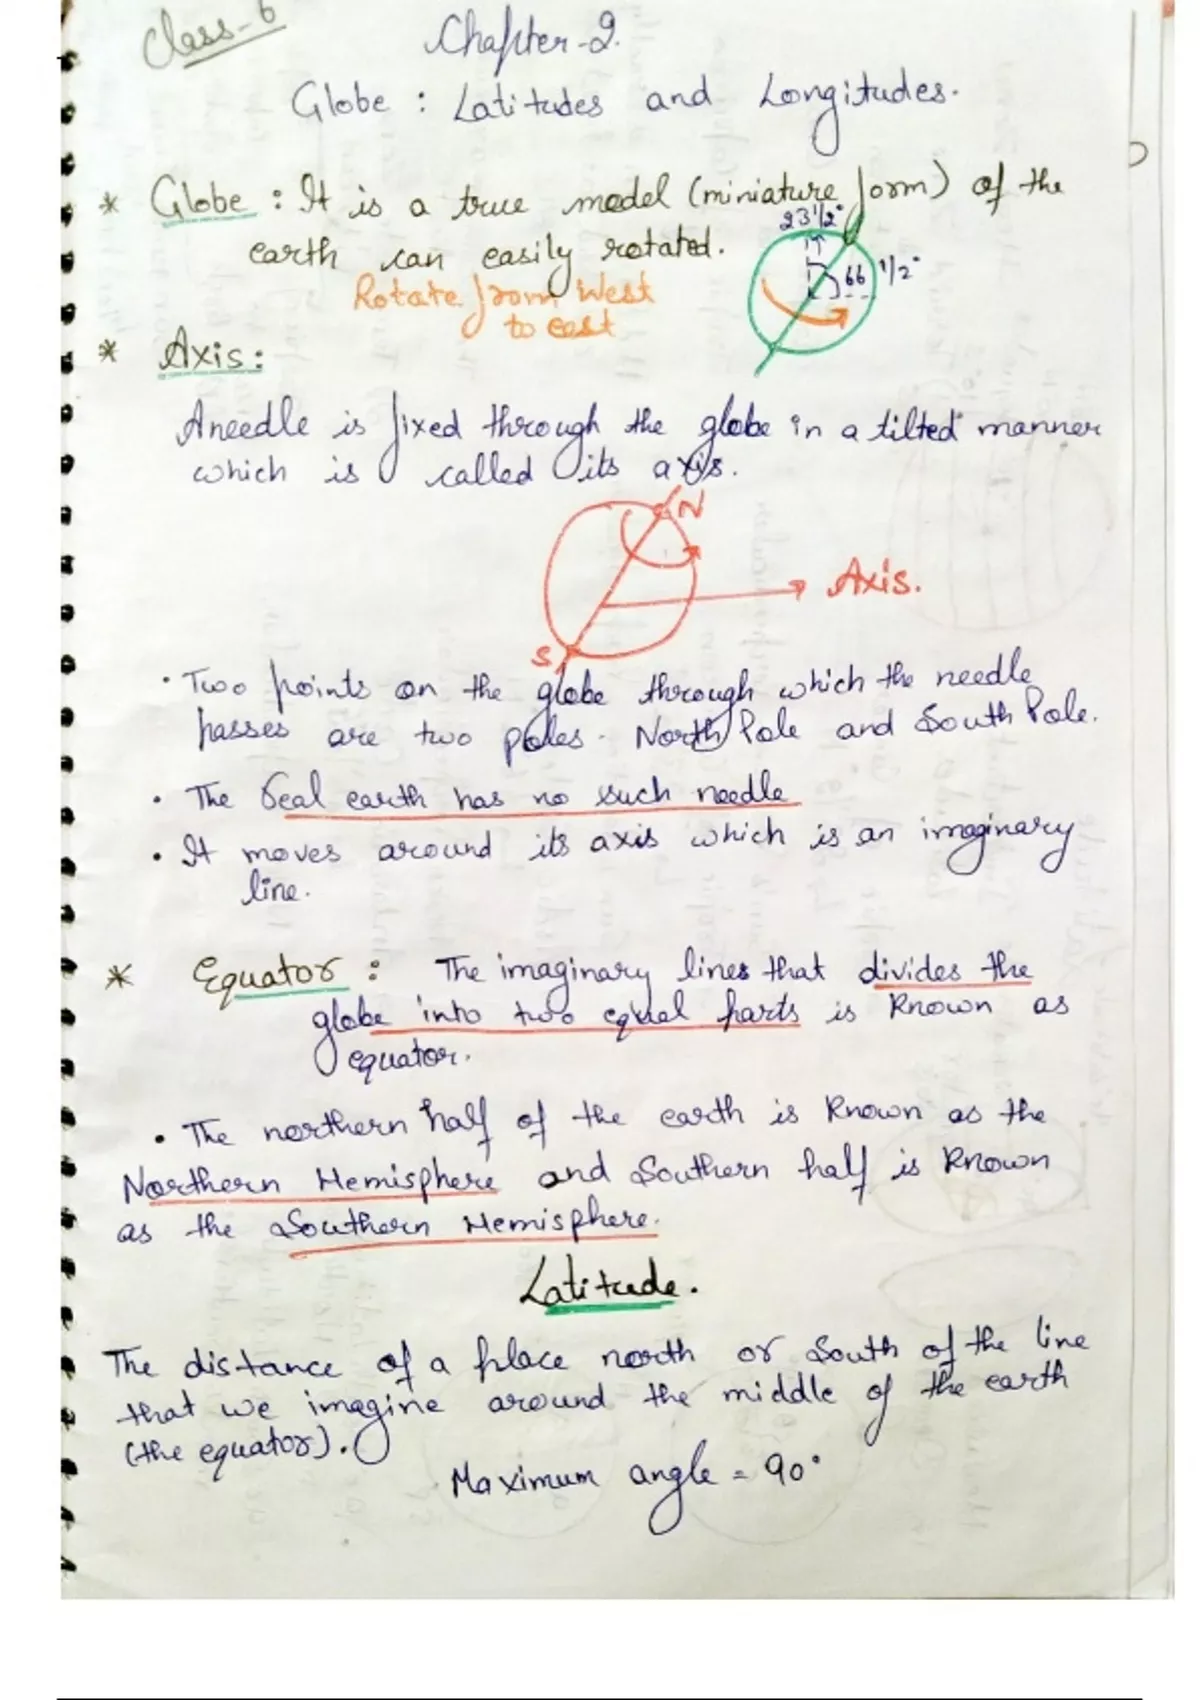 Class-6
Chapter-2.
Globe : Latitudes and Longitudes.
* Globe : It is a true model (miniature form) of the
earth can easily rotated.
23 1/2°
66 1/2°
Rotate from West
to east
* Axis :
A needle is fixed through the globe in a tilted manner
which is called its axis.
N
Axis.
S
• Two points on the globe through which the needle
passes are two poles. North Pole and South Pole.
• The real earth has no such needle
• It moves around its axis which is an imaginary
line.
* Equator : The imaginary lines that divides the
globe into two equal parts is known as
equator.
• The northern half of the earth is known as the
Northern Hemisphere and Southern half is known
as the Southern Hemisphere.
Latitude.
The distance of a place north or South of the line
that we imagine around the middle of the earth
(the equator).
Maximum angle = 90°